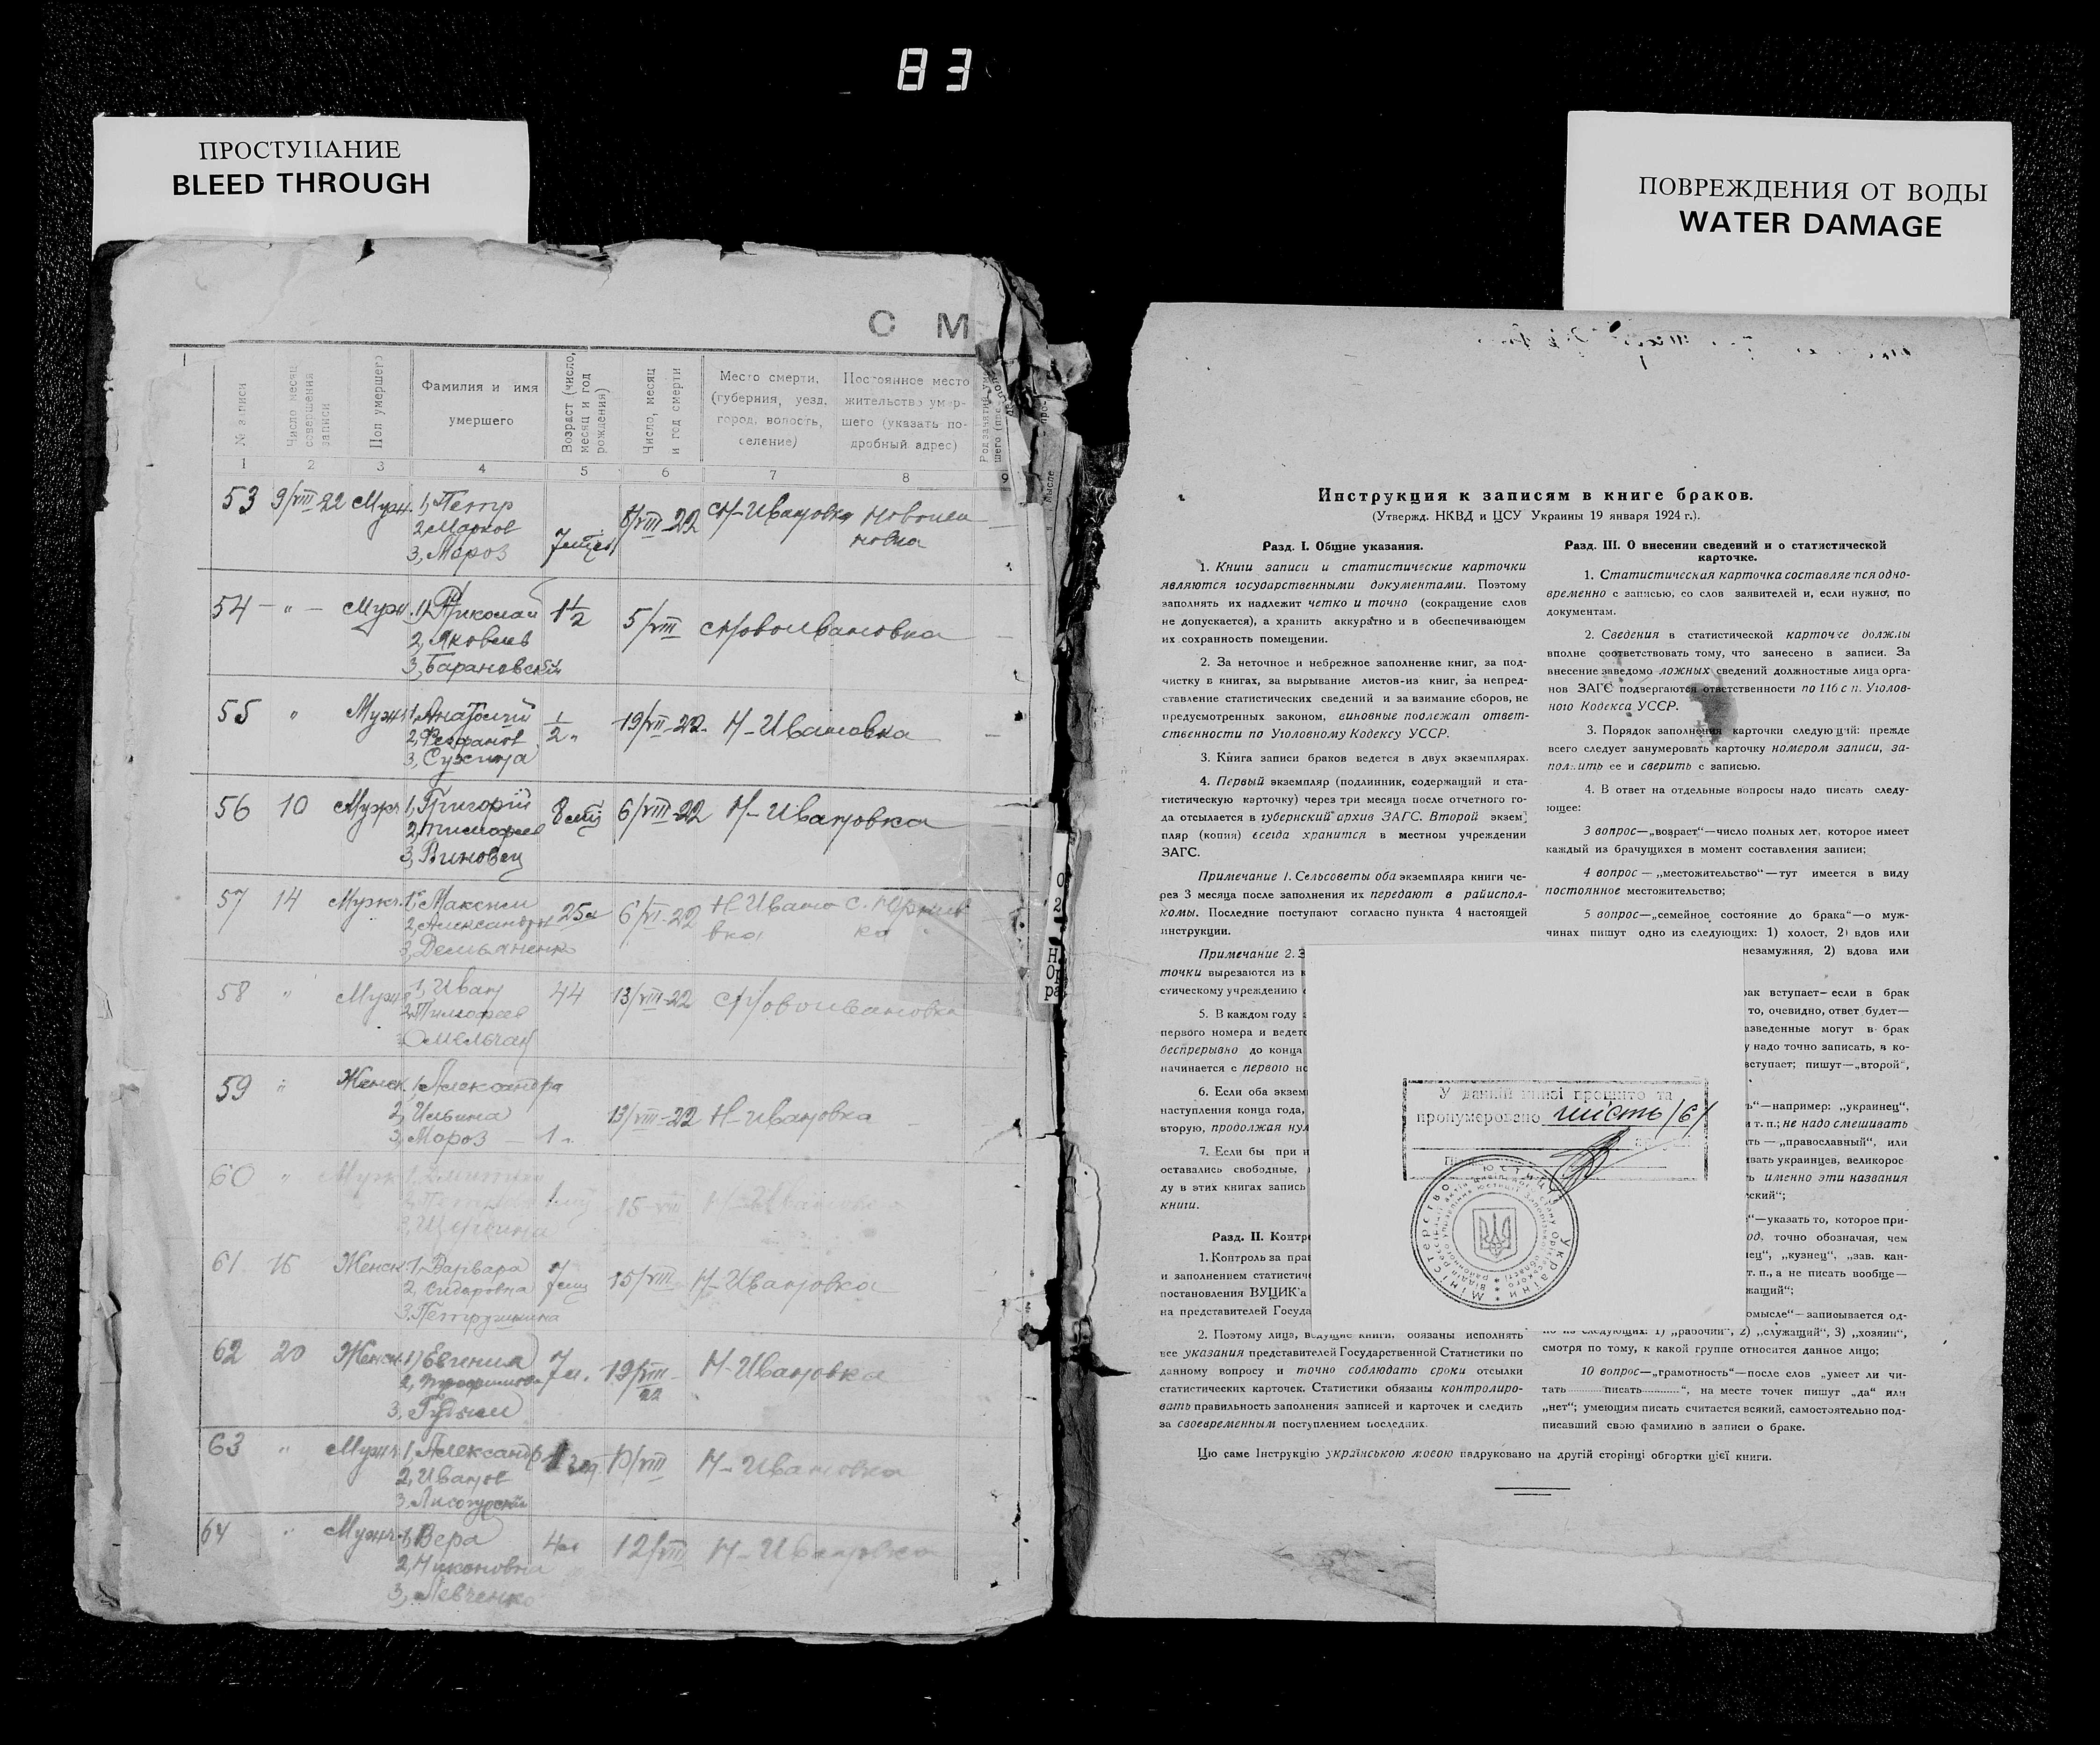 83
ПРОСТУПАНИЕ
BLEED THROUGH
ПОВРЕЖДЕНИЯ ОТ ВОДЫ
WATER DAMAGE
С М
№ записи
Число месяц совершения записи
Пол умершего
Фамилия и имя
умершего
Возраст (число, месяц и год рождения)
Число, месяц и год смерти
Место смерти,
(губерния, уезд,
город, волость,
селение)
Постоянное место
жительства умер-
шего (указать по-
дробный адрес)
1 2 3 4 5 6 7 8 9
53 9/VIII 22 Мужч. 1, Петр 8/VIII 22 Н-Ивановка
2, Марков
3, Мороз
54 — „ — Мужч. 1, Николай 1½ 5/VIII Новоивановка
2, Яковлев
3, Барановский
55 „ Мужч. 1, Анатолий 1/2 „ 19/VII-22. Н-Ивановка
2, Стефанов
3, Сухина
56 10 Мужч 1, Григорий 6/VIII-22 Н-Ивановка
2, Тимофеев
3, Виновец
57 14 Мужч. 1, Максим 25 л 6/VI-22 Н-Ивано
2, Александров вка
3, Демьяненко
58 „ Мужч 1, Иван 44 13/VIII-22 Новоивановка
2, Тимофеев
Омельчан
59 „ Женск. 1, Александра
2, Ильина 13/VIII-22 Н-Ивановка
3, Мороз — 1 „
60 „ Мужч 15-VIII
61 15 Женск. 1, Варвара 15/VIII Н-Ивановка
2, Сидоровна
3, Петрушина
62 20 Женск. 1, Евгения 7 л. 19/VIII- Н-Ивановка
22
63 „ Мужч. 1, Александр 1 Н-Ивановка
2, Иванов
3, Лисогурский
64 „ Мужч. 1, Вера 4 л 12/VIII Н-Ивановка
2, Никоновна
3, Левченко
Инструкция к записям в книге браков.
(Утвержд. НКВД и ЦСУ Украины 19 января 1924 г.).
Разд. I. Общие указания.
1. Книги записи и статистические карточки
являются государственными документами. Поэтому
заполнять их надлежит четко и точно (сокращение слов
не допускается), а хранить аккуратно и в обеспечивающем
их сохранность помещении.
2. За неточное и небрежное заполнение книг, за под-
чистку в книгах, за вырывание листов из книг, за непред-
ставление статистических сведений и за взимание сборов, не
предусмотренных законом, виновные подлежат ответ-
ственности по Уголовному Кодексу УССР.
3. Книга записи браков ведется в двух экземплярах.
4. Первый экземпляр (подлинник, содержащий и ста-
тистическую карточку) через три месяца после отчетного го-
да отсылается в губернский архив ЗАГС. Второй экзем
пляр (копия) всегда хранится в местном учреждении
ЗАГС.
Примечание 1. Сельсоветы оба экземпляра книги че-
рез 3 месяца после заполнения их передают в райиспол-
комы. Последние поступают согласно пункта 4 настоящей
инструкции.
Примечание 2. З
точки вырезаются из к
стическому учреждению
5. В каждом году
первого номера и ведетс
беспрерывно до конца
начинается с первого но
6. Если оба экзем
наступления конца года,
вторую, продолжая ну
7. Если бы при и
оставались свободные,
ду в этих книгах запись
книги.
Разд. II. Контр
1. Контроль за пра
и заполнением статистич
постановления ВУЦИК'а
на представителей Госуда
2. Поэтому лица, ведущие книги, обязаны исполнять
все указания представителей Государственной Статистики по
данному вопросу и точно соблюдать сроки отсылки
статистических карточек. Статистики обязаны контролиро-
вать правильность заполнения записей и карточек и следить
за своевременным поступлением последних.
Разд. III. О внесении сведений и о статистической
карточке.
1. Статистическая карточка составляется одно-
временно с записью, со слов заявителей и, если нужно, по
документам.
2. Сведения в статистической карточке должны
вполне соответствовать тому, что занесено в записи. За
внесение заведомо ложных сведений должностные лица орга-
нов ЗАГС подвергаются ответственности по 116 с п. Уголов-
ного Кодекса УССР.
3. Порядок заполнения карточки следующий: прежде
всего следует занумеровать карточку номером записи, за-
полнить ее и сверить с записью.
4. В ответ на отдельные вопросы надо писать следу-
ющее:
3 вопрос—„возраст“—число полных лет, которое имеет
каждый из брачущихся в момент составления записи;
4 вопрос — „местожительство“—тут имеется в виду
постоянное местожительство;
5 вопрос—„семейное состояние до брака“—о муж-
чинах пишут одно из следующих: 1) холост, 2) вдов или
незамужняя, 2) вдова или
рак вступает—если в брак
то, очевидно, ответ будет—
азведенные могут в брак
у надо точно записать, в ко-
вступает; пишут—„второй“,
ь“—например: „украинец“,
и т. п.; не надо смешивать
ть — „православный“, или
ивать украинцев, великорос
ь именно эти названия
ский“;
“—указать то, которое при-
од, точно обозначая, чем
ец“, „кузнец“, „зав. кан-
т. п., а не писать вообще—
жащий“;
омысле“—записывается од-
но из следующих: 1) „рабочий“, 2) „служащий“, 3) „хозяин“,
смотря по тому, к какой группе относится данное лицо;
10 вопрос—„грамотность“—после слов „умеет ли чи-
тать ......... писать .........“, на месте точек пишут „да“ или
„нет“; умеющим писать считается всякий, самостоятельно под-
писавший свою фамилию в записи о браке.
Цю саме Інструкцію українською мовою надруковано на другій сторінці обгортки цієї книги.
У даній книзі прошито та
пронумеровано шість /6/